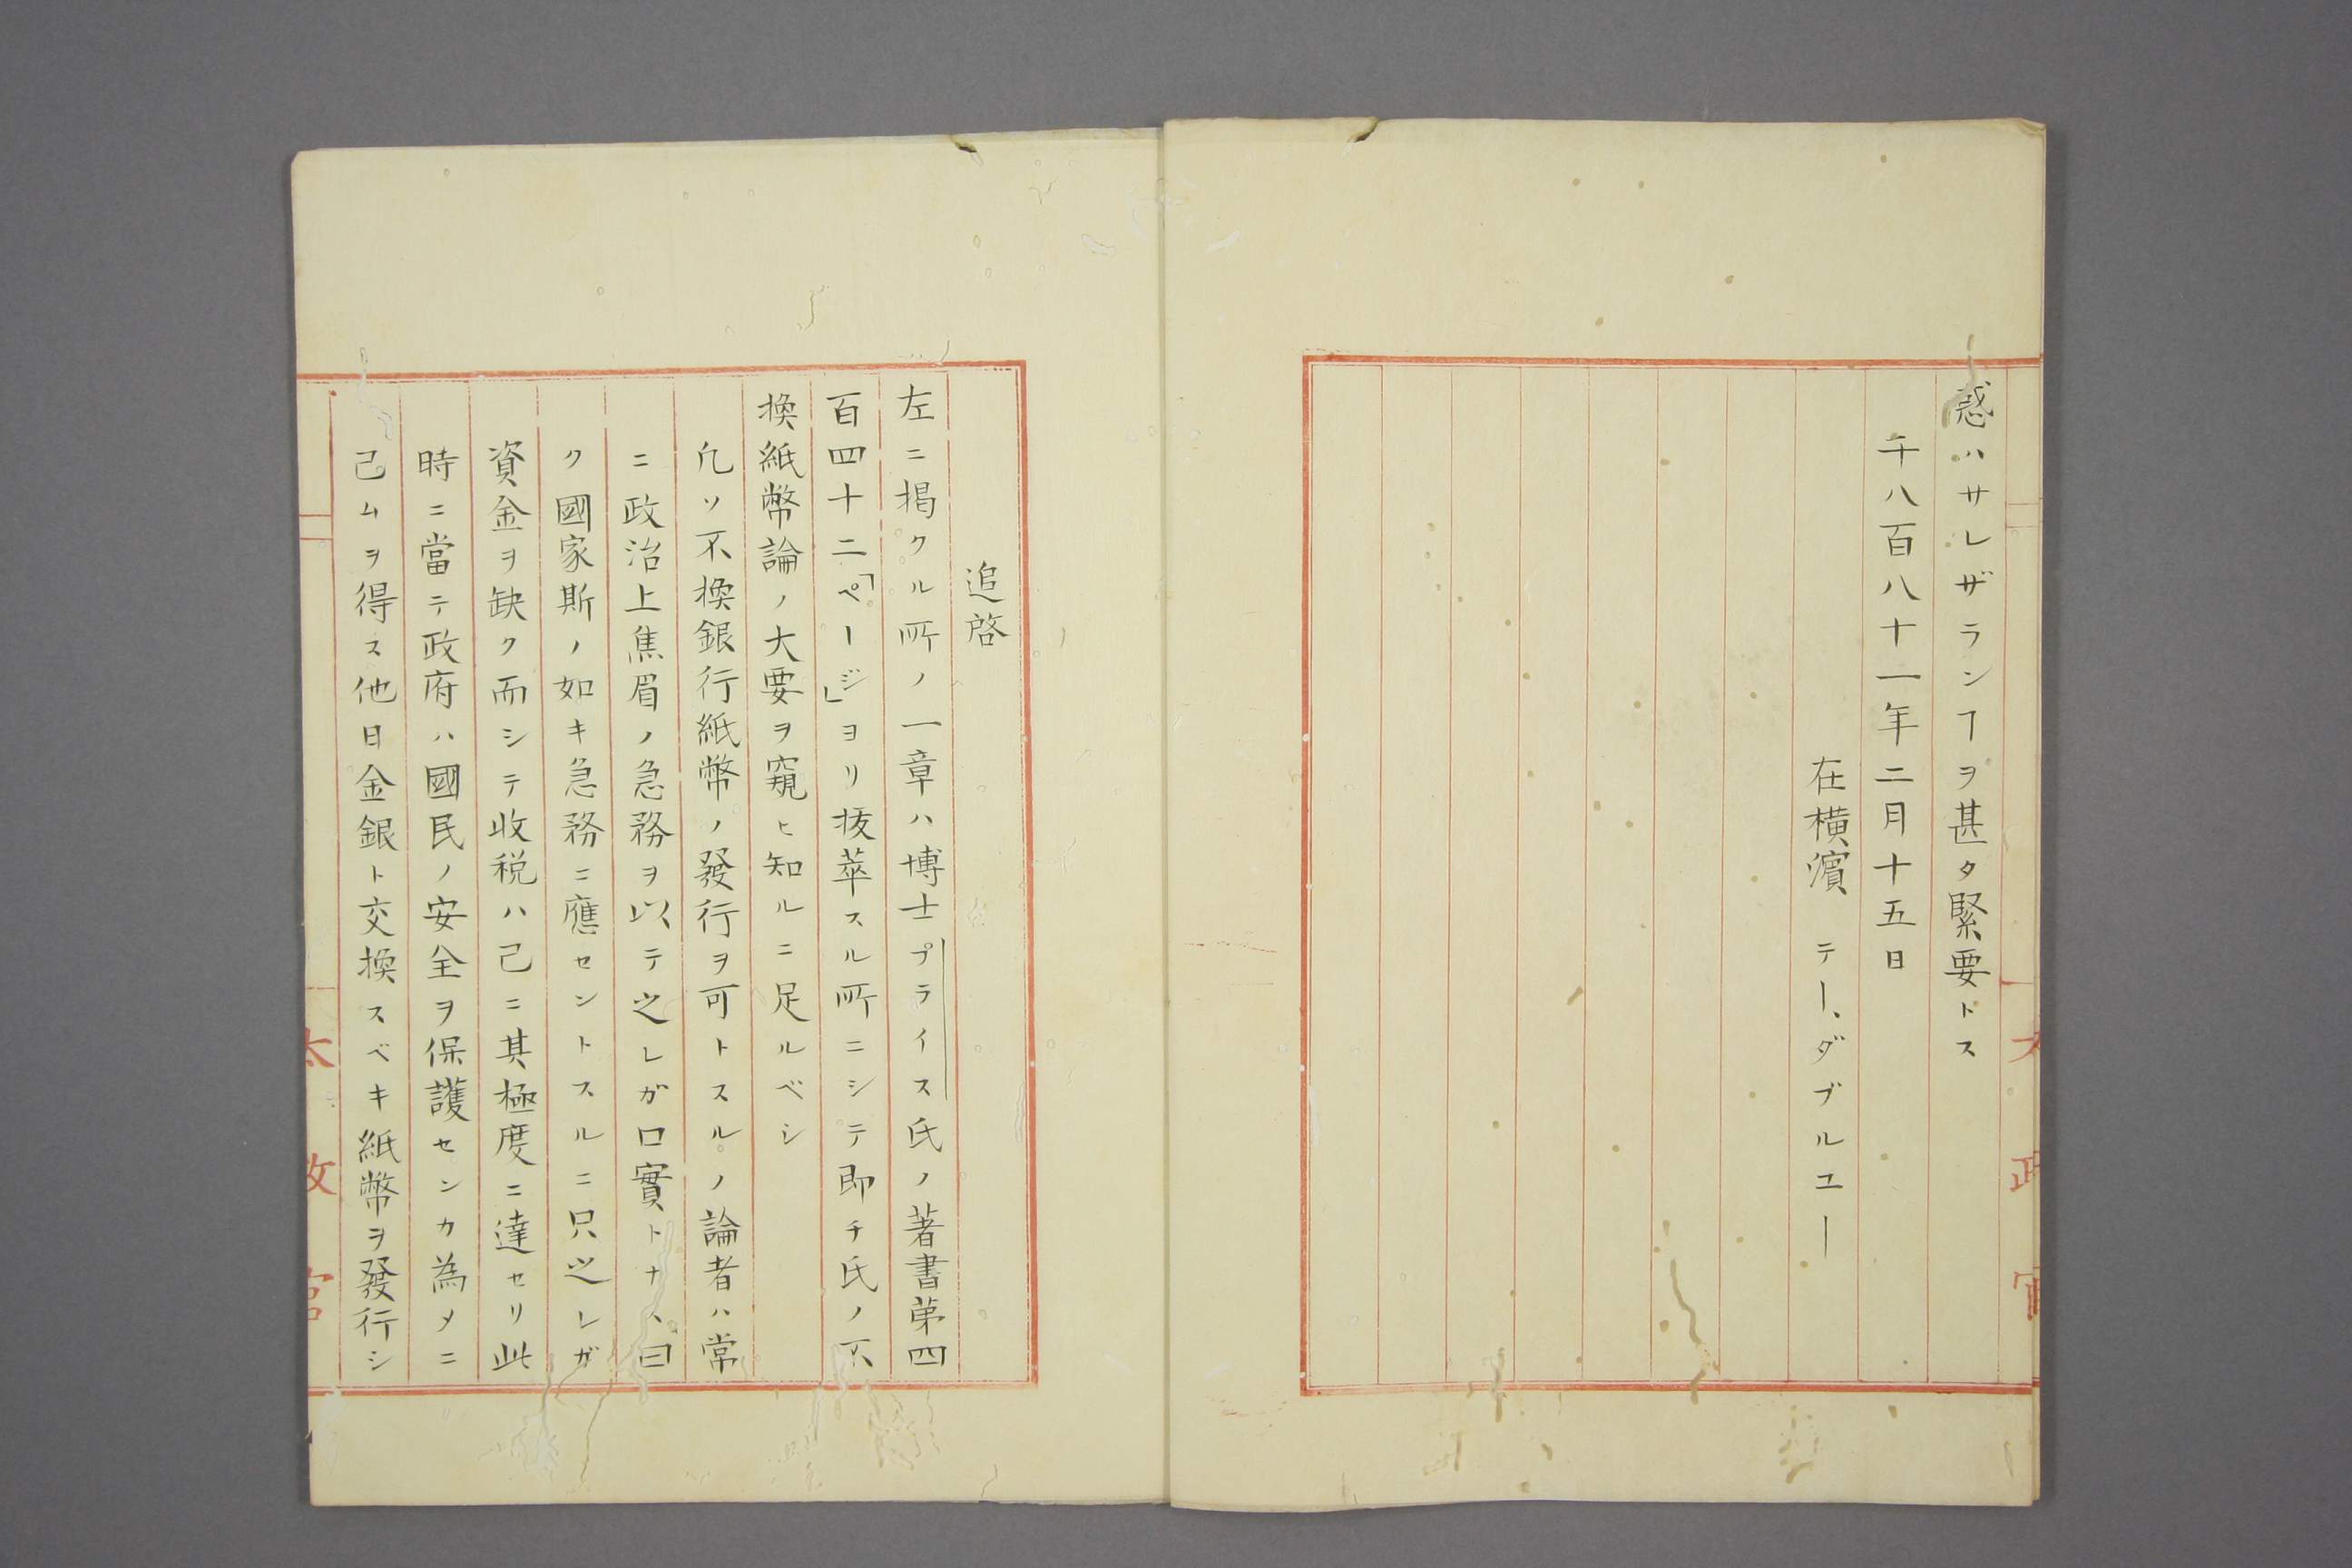 惑ハサレザランヿヲ甚タ緊要トス
千八百八十一年二月十五日
在横濵 テー、ダブルユー
追啓
左ニ掲クル所ノ一章ハ博士プライス氏ノ著書第四
百四十二「ページ」ヨリ抜萃スル所ニシテ即チ氏ノ不
換紙幣論ノ大要ヲ窺ヒ知ルニ足ルベシ
凢ソ不換銀行紙幣ノ發行ヲ可トスルノ論者ハ常
ニ政治上焦眉ノ急務ヲ以テ之レガ口實トナス、曰
ク國家斯ノ如キ急務ニ應セントスルニ只之レガ
資金ヲ缺ク而シテ收税ハ己ニ其極度ニ達セリ此
時ニ當テ政府ハ國民ノ安全ヲ保護センカ為メニ
己ムヲ得ス他日金銀ト交換スベキ紙幣ヲ發行シ
太政官